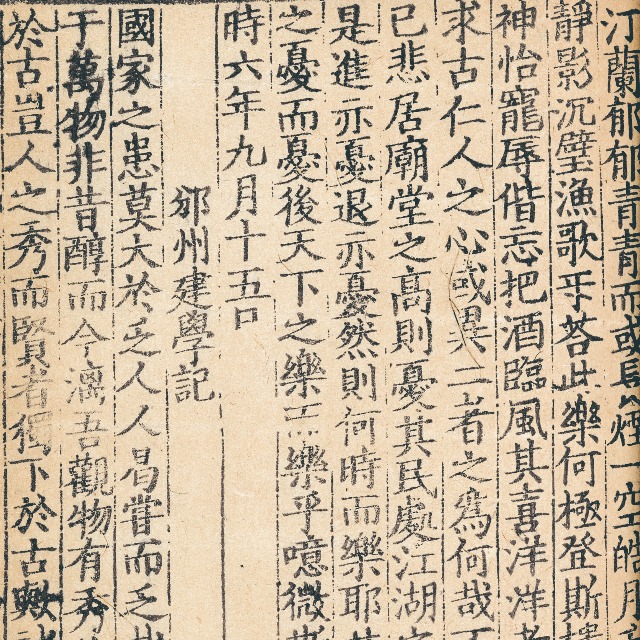 汀蘭郁郁青青而或長煙一空皓月
靜影沉璧漁歌乎荅此樂何極登斯樓
神怡寵辱偕忘把酒臨風其喜洋洋者
求古仁人之心或異二者之爲何哉不
已悲居廟堂之高則憂其民處江湖
是進亦憂退亦憂然則何時而樂耶其
之憂而憂後天下之樂而樂乎噫微斯
時六年九月十五日
邠州建學記
國家之患莫大於乏人人曷嘗而乏哉
于萬物非昔醇而今漓吾觀物有秀
於古豈人之秀而賢者獨下於古歟